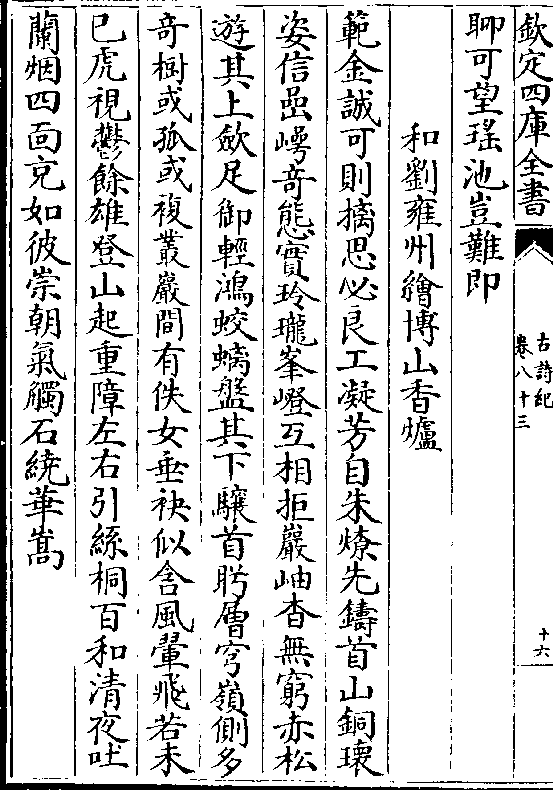 欽定四庫全書
古詩紀
卷八十三
十六
聊可望瑤池豈難即
和劉雍州繪博山香爐
範金誠可則摛思必良工凝芳自朱燎先鑄首山銅瓌
姿信嵒崿奇態實玲瓏峯嶝互相拒巖岫杳無窮赤松
遊其上斂足御輕鴻蛟螭盤其下驤首眄層穹嶺側多
奇樹或孤或複叢巖間有佚女垂袂似含風翬飛若未
已虎視鬱餘雄登山起重障左右引絲桐百和清夜吐
蘭烟四面充如彼崇朝氣觸石繞華嵩